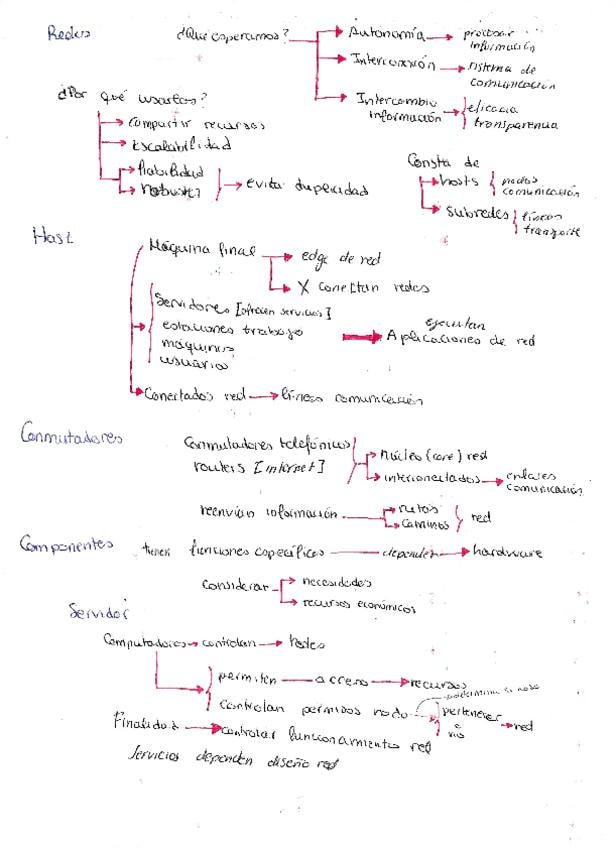 Redes
¿Qué esperamos?
Autonomía procesar
información
Interconexión sistema de
comunicación
Intercambio
información
eficacia
transparencia
¿Por qué usarlos?
Compartir recursos
Escalabilidad
fiabilidad
robustez
evita duplicidad
Consta de
hosts
nodos
comunicación
subredes
líneas
transporte
Host
Máquina final
edge de red
X conectan redes
Servidores [ofrecen servicios]
estaciones trabajo
máquinas
usuarios
ejecutan
Aplicaciones de red
Conectados red líneas comunicación
Conmutadores
Conmutadores telefónicos
routers [internet]
núcleo (core) red
interconectados enlaces
comunicación
reenvían información
rutas
caminos
red
Componentes tienen funciones específicas dependen hardware
Considerar
necesidades
recursos económicos
Servidor
Computadores controlan redes
permiten acceso recursos
controlan permisos nodo
pertenecer
o
no
red
Finalidad controlar funcionamiento red
Servicios dependen diseño red